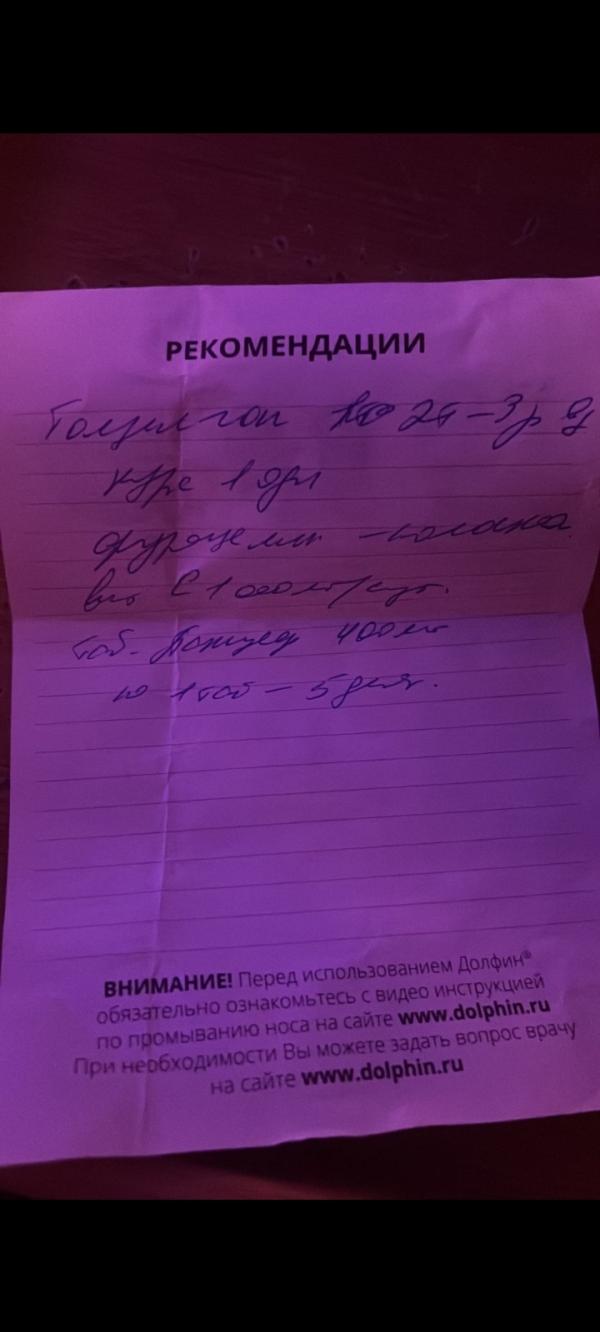 РЕКОМЕНДАЦИИ
Тонзилгон по 2т – 3р д
курс 1
фурацилин – полоска
вит С 1000мг/сут.
таб. Панцеф 400мг
по 1 таб – 5 дней.
ВНИМАНИЕ! Перед использованием Долфин®
обязательно ознакомьтесь с видео инструкцией
по промыванию носа на сайте www.dolphin.ru
При необходимости Вы можете задать вопрос врачу
на сайте www.dolphin.ru